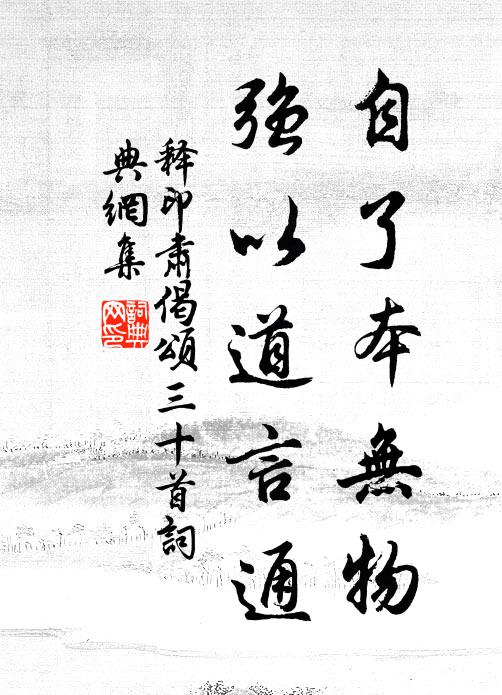 自了本無物
強以道言通
释印肃偈頌三十首詞
典網集
詞典網印